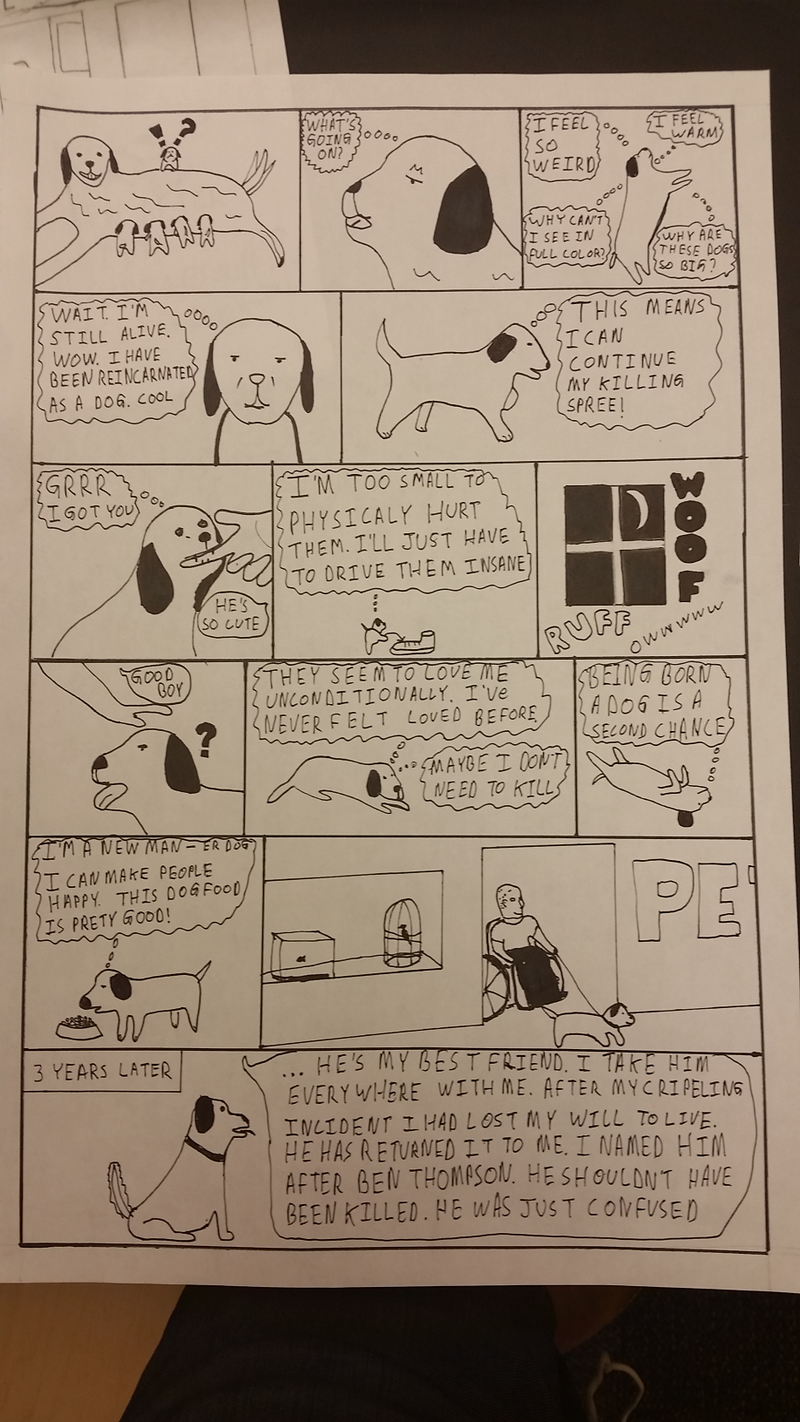 ! ?
WHAT'S
GOING
ON?
I FEEL
SO
WEIRD
I FEEL
WARM
WHY CAN'T
I SEE IN
FULL COLOR?
WHY ARE
THESE DOGS
SO BIG?
WAIT. I'M
STILL ALIVE.
WOW. I HAVE
BEEN REINCARNATED
AS A DOG. COOL
THIS MEANS
I CAN
CONTINUE
MY KILLING
SPREE!
GRRR
I GOT YOU
HE'S
SO CUTE
I'M TOO SMALL TO
PHYSICALY HURT
THEM. I'LL JUST HAVE
TO DRIVE THEM INSANE
WOOF
RUFF
OWWWWWW
GOOD
BOY
?
THEY SEEM TO LOVE ME
UNCONDITIONALLY. I'VE
NEVER FELT LOVED BEFORE
MAYBE I DONT
NEED TO KILL
BEING BORN
A DOG IS A
SECOND CHANCE
I'M A NEW MAN - ER DOG
I CAN MAKE PEOPLE
HAPPY. THIS DOG FOOD
IS PRETY GOOD!
PE
3 YEARS LATER
... HE'S MY BEST FRIEND. I TAKE HIM
EVERYWHERE WITH ME. AFTER MY CRIPELING
INCIDENT I HAD LOST MY WILL TO LIVE.
HE HAS RETURNED IT TO ME. I NAMED HIM
AFTER BEN THOMPSON. HE SHOULDN'T HAVE
BEEN KILLED. HE WAS JUST CONFUSED